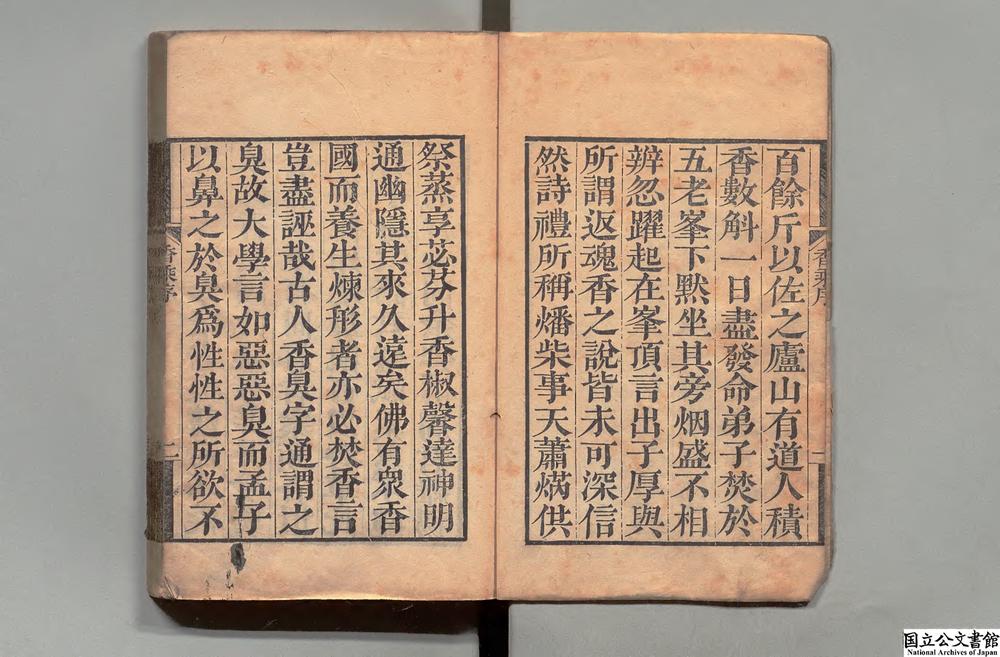 百餘斤以佐之廬山有道人積
香數斛一日盡發命弟子焚於
五老峯下默坐其旁烟盛不相
辨忽躍起在峯頂言出子厚與
所謂返魂香之說皆未可深信
然詩禮所稱燔柴事天蕭焫供
祭蒸享苾芬升香椒馨達神明
通幽隱其來久遠矣佛有衆香
國而養生煉形者亦必焚香言
豈盡誣哉古人香臭字通謂之
臭故大學言如惡惡臭而孟子
以鼻之於臭爲性性之所欲不
香乘序
一
香乘序
二
国立公文書館
National Archives of Japan